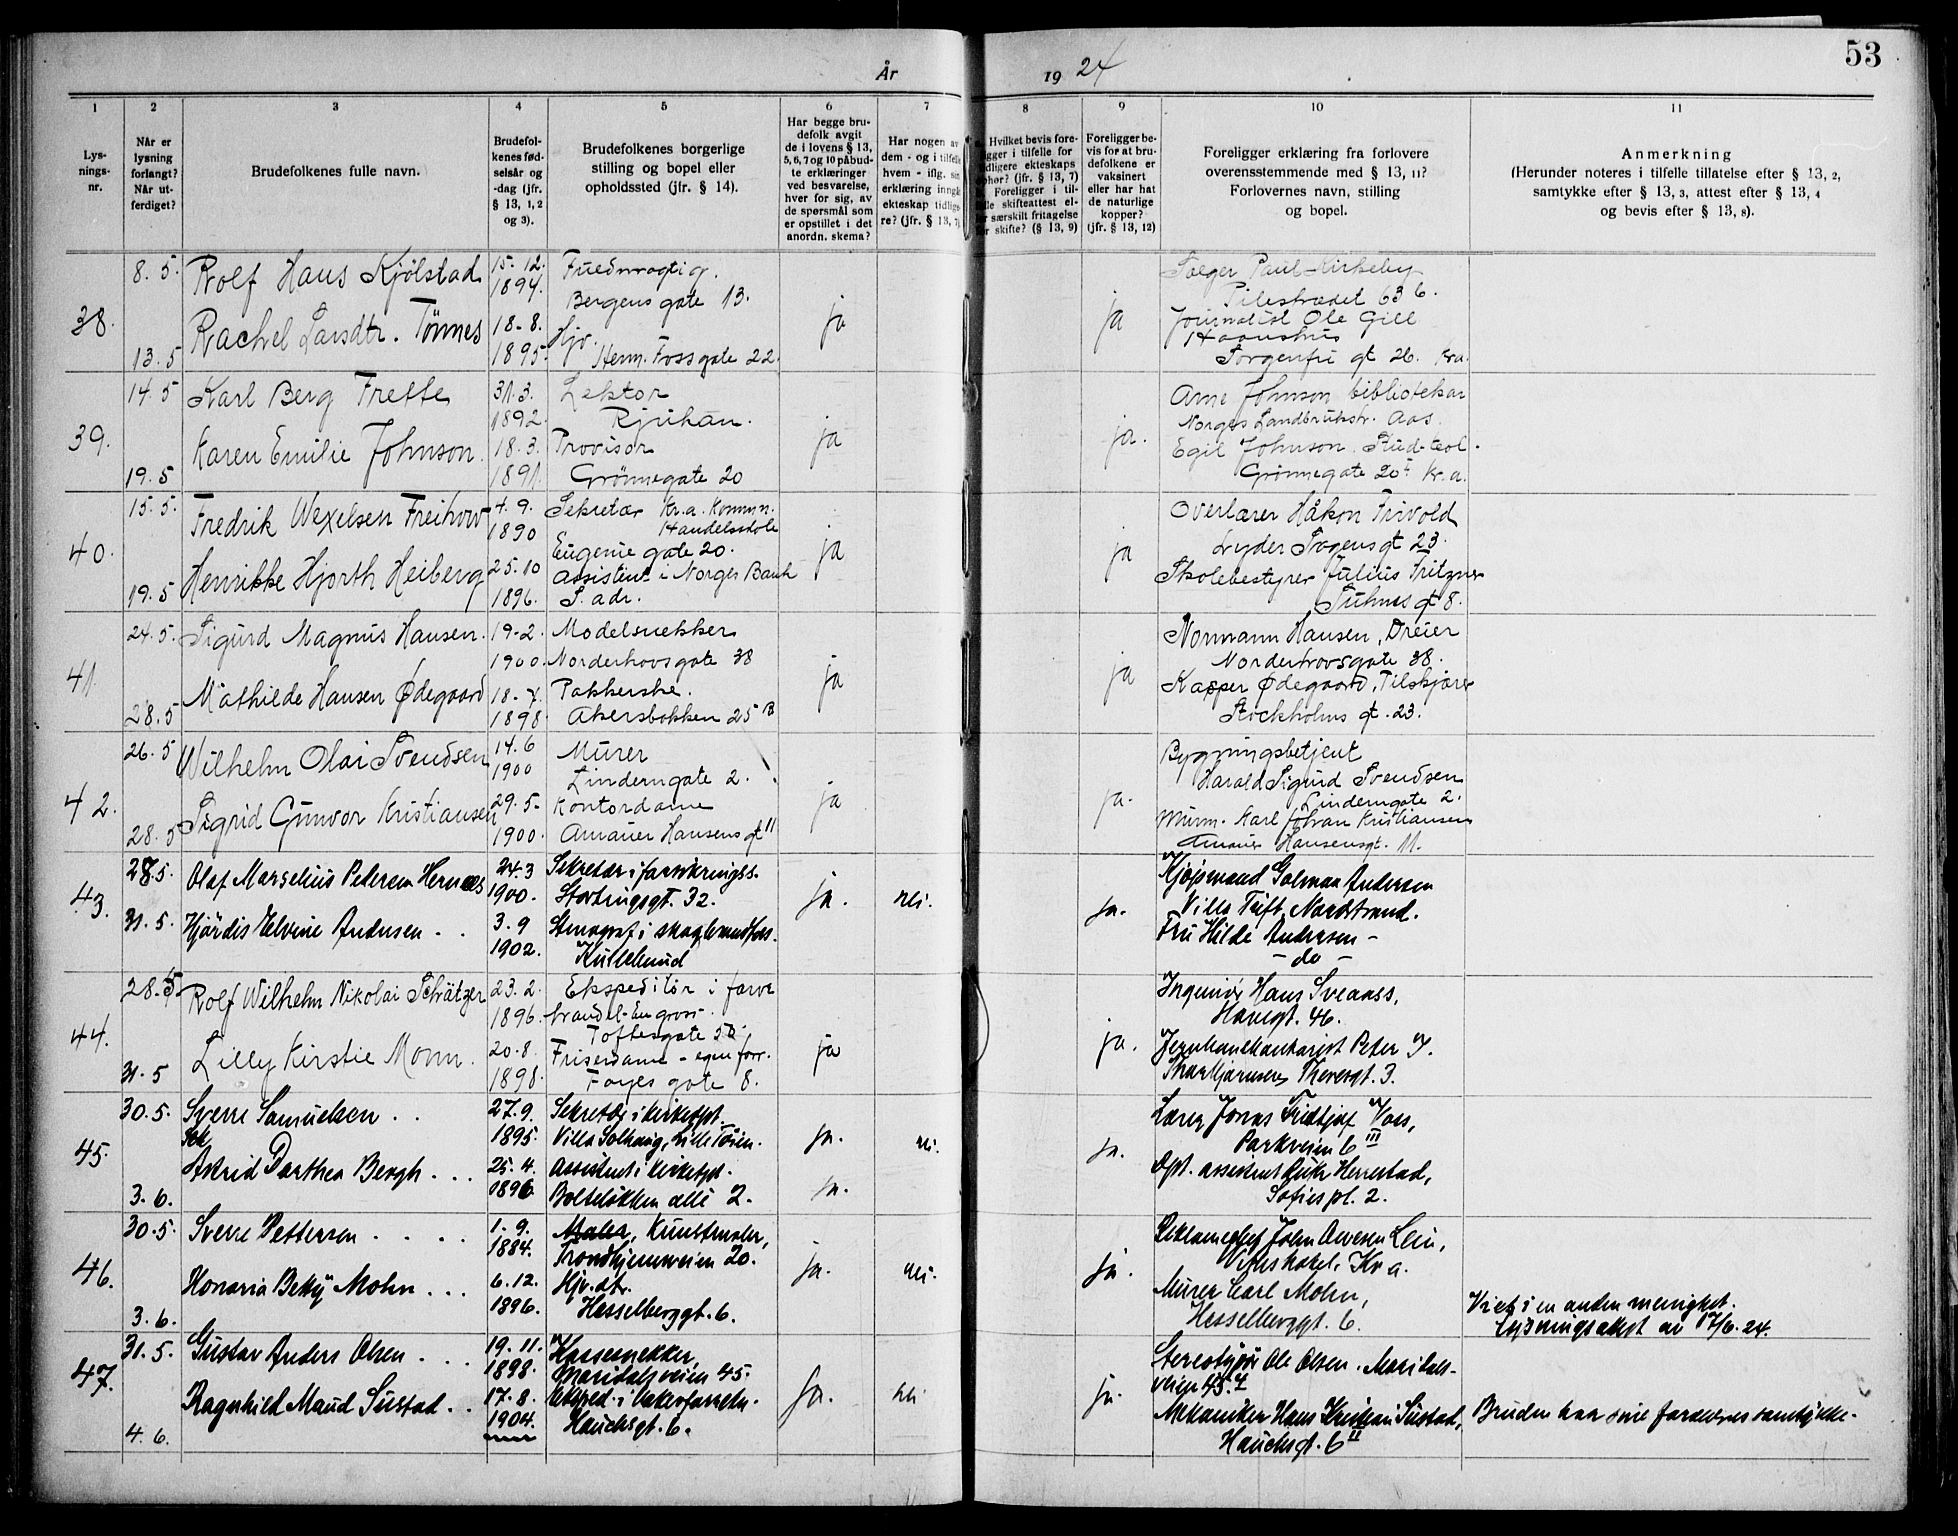 53
År 1924
1 2 3 4 5 6 7 8 9 10 11
Lys-
nings-
nr.
Når er
lysning
forlangt?
Når ut-
ferdiget?
Brudefolkenes fulle navn.
Brudefol-
kenes fød-
selsår og
-dag (jfr.
§ 13, 1, 2
og 3).
Brudefolkenes borgerlige
stilling og bopel eller
opholdssted (jfr. § 14).
Har begge bru-
defolk avgit
de i lovens § 13,
5, 6, 7 og 10 påbud-
te erklæringer
ved besvarelse,
hver for sig, av
de spørsmål som
er opstillet i det
anordn. skema?
Har nogen av
dem - og i tilfelle
hvem - iflg. sin
erklæring inngå
ekteskap tidlige
re? (jfr. § 13, 7)
Hvilket bevis fore-
gger i tilfelle for
dligere ekteskaps
phør? (jfr. § 13, 7)
Foreligger i til-
lle skifteattest el-
r særskilt fritagelse
r skifte? (§ 13, 9)
Foreligger be-
vis for at bru-
defolkene er
vaksinert
eller har hat
de naturlige
kopper?
(jfr. § 13, 12)
Foreligger erklæring fra forlovere
overensstemmende med § 13, 11?
Forlovernes navn, stilling
og bopel.
Anmerkning
(Herunder noteres i tilfelle tillatelse efter § 13, 2,
samtykke efter § 13, 3, attest efter § 13, 4
og bevis efter § 13, 8).
38.
8. 5.
13. 5
Rolf Hans Kjølstad
Rachel Larsdtr. Tønnes
15. 12.
1894.
18. 8.
1895.
Bergens gate 13.
Hjv.
Herm. Foss gate 22.
ja
ja
Paul Kirkeby
Pilestrædet 63 b.
Journalist Ole Gill
Sorgenfri gt 26. Kra.
39.
14. 5
19. 5
Karl Berg Frette
Karen Emilie Johnson.
31. 3.
1892.
18. 3.
1891.
Lektor
Rjukan.
Provisor
Grønnegate 20
ja
ja.
Arne Johnson bibliotekar
Norges Landbrukshr. Aas.
Egil Johnson. Stud. teol.
Grønnegate 20 Kr.a.
40.
15. 5.
19. 5
Fredrik Wexelsen Freihow
Henrikke Hjorth Heiberg
4. 9.
1890
25. 10
1896.
Sekretær Kr.a. Kommun.
Handelsskole
Eugenie gate 20.
Assistent i Norges Bank
S. adr.
ja
ja
Overlærer Håkon Trivold
Lyder Sagens gt 23.
Skolebestyrer Julius Fritzner
Suhms gt 8.
41.
24. 5.
28. 5
Sigurd Magnus Hansen.
Mathilde Hansen Ødegaard
19-2.
1900.
18-7.
1898.
Modelsnekker
Norderhovsgate 38
Pakkerske.
Akersbakken 25 B
ja
ja
Normann Hansen, Dreier
Norderhovsgate 38.
Kasper Ødegaard, Tilskjærer
Stockholms gt. 23.
42.
26. 5
28. 5
Wilhelm Olai Svendsen
Sigrid Gunvor Kristiansen
14. 6
1900
29. 5.
1900.
Murer
Linderngate 2.
Kontordame
Amauer Hansens gt 11
ja
ja.
Bygningsbetjent
Harald Sigurd Svendsen
Linderngate 2.
Murm. Karl Johan Kristiansen
Amauer Hansensgt. 11.
43.
28. 5.
31. 5.
Olaf Marselius Petersen Hernæs
Hjördis Elvine Andersen . .
24.3
1900.
3. 9
1902.
Sekretær i forsikringss.
Stortingsgt. 32.
Stenograf i skogbrandfors.
ja.
nei.
ja.
Kjøpmand Golman Andersen
Villa Tuft, Nordstrand.
Fru Hilde Andersen -
- do -
44.
28. 5
31. 5
Rolf Wilhelm Nikolai Schrätzer
Lilly Kirstie Monn.
23. 2.
1896.
20. 8.
1898.
Ekspeditør i farve
handel-En gros.
Toftesgate
Friserdame - egen forr.
Foyes gate 8.
ja
ja.
Ingeniør Hans Sveaass,
Havegt. 46.
Peter J.
Theresgt. 3.
45.
30. 5.
3. 6.
Sverre Samuelsen . .
Astrid Dorthea Bergh . . .
27. 9.
1895.
25. 4.
1896.
Sekretær i kirkedpt.
Villa Solhaug, Lille Tøien.
Assistent i kirkedpt.
Bolteløkken allé 2.
ja.
ja.
nei.
ja.
Lærer Jonas Fridtjof Voss,
Parkveien 6 III
Dpt. assistent Herrestad,
Sofies pl. 2.
46.
30. 5.
3. 6.
Sverre Pettersen . . . .
Honoria Betty Mohn . . .
1. 9.
1884.
6. 12.
1896.
Maler, Kunstmaler,
Trondhjemsveien 20.
Hjv. dtr.
Hesselberggt. 6.
ja.
nei.
ja.
Reklamechef John Lein,
Kr a.
Murer Carl Mohn,
Hesselberggt. 6.
Viet i en anden menighet.
Lysningsattest av 17/6. 24.
47.
31. 5.
4. 6.
Gustav Anders Olsen . . .
Ragnhild Maud Sustad . .
19. 11.
1898.
17. 8.
1904.
Kassesnekker,
Maridalsveien 45.
Eksped. i bakerforretn.
Hauchsgt. 6.
ja.
nei
ja.
Stereotypør Ole Olsen. Maridals-
veien 45. I
Mekaniker Hans Kristian Sustad,
Hauchsgt. 6 II
Bruden har sine forældres samtykke.